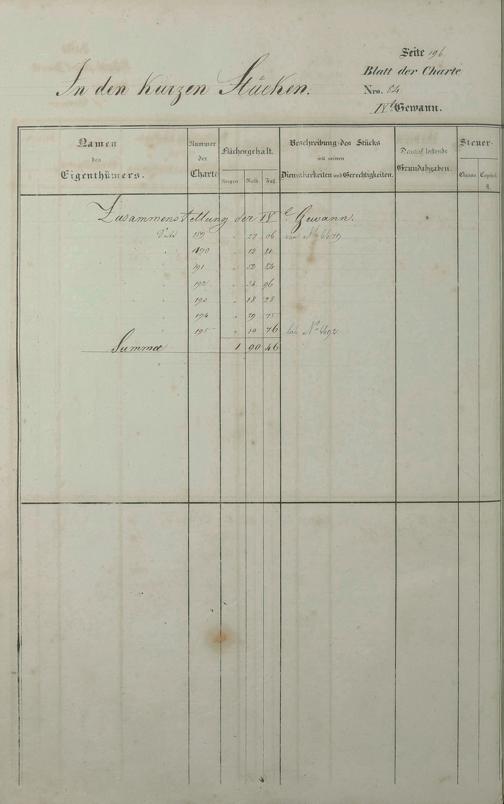 Seite 196
Blatt der Charte
In den kurzen Stücken.
Nro. 64
IV.te Gewann.
Namen des Eigenthümers.
Nummer der Charte
Flächengehalt.
Morgen Ruth. Fuß
Beschreibung des Stücks mit seinen Dienstbarkeiten und Gerechtigkeiten.
Darauf haftende Grundabgaben.
Steuer-
Classe Capital
Zusammenstellung der IV.te Gewann.
Seite 189 " 27 06 von No
190 "
191 "
192 " 96
193 " 18 28
194 " 75
195 " 10 76 bis No
Summa 1 90 46